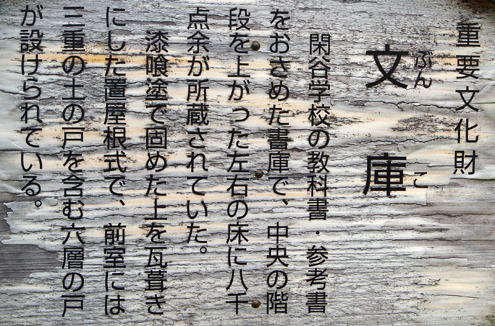 重要文化財
ぶんこ
文庫
閑谷学校の教科書・参考書
をおさめた書庫で、中央の階
段を上がった左右の床に八千
点余が所蔵されていた。
漆喰塗で固めた上を瓦葺き
にした置屋根式で、前室には
三重の土の戸を含む六層の戸
が設けられている。